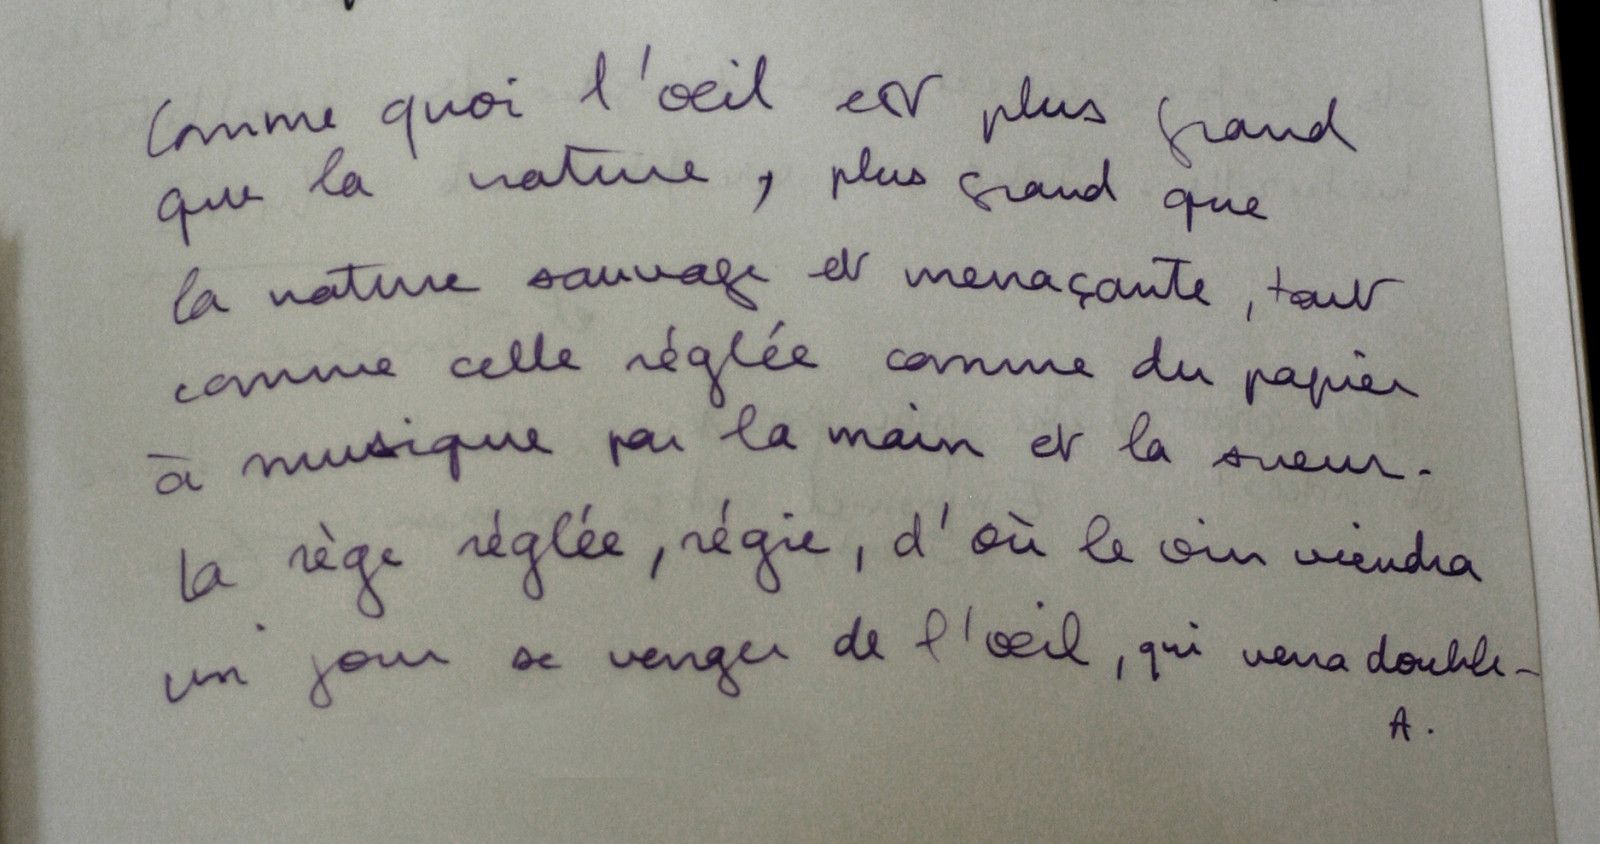 Comme quoi l'oeil est plus grand
que la nature, plus grand que
la nature sauvage et menaçante, tout
comme celle réglée comme du papier
à musique par la main et la sueur.
la rège réglée, régie, d'où le vin viendra
un jour se venger de l'oeil, qui verra double -
A.